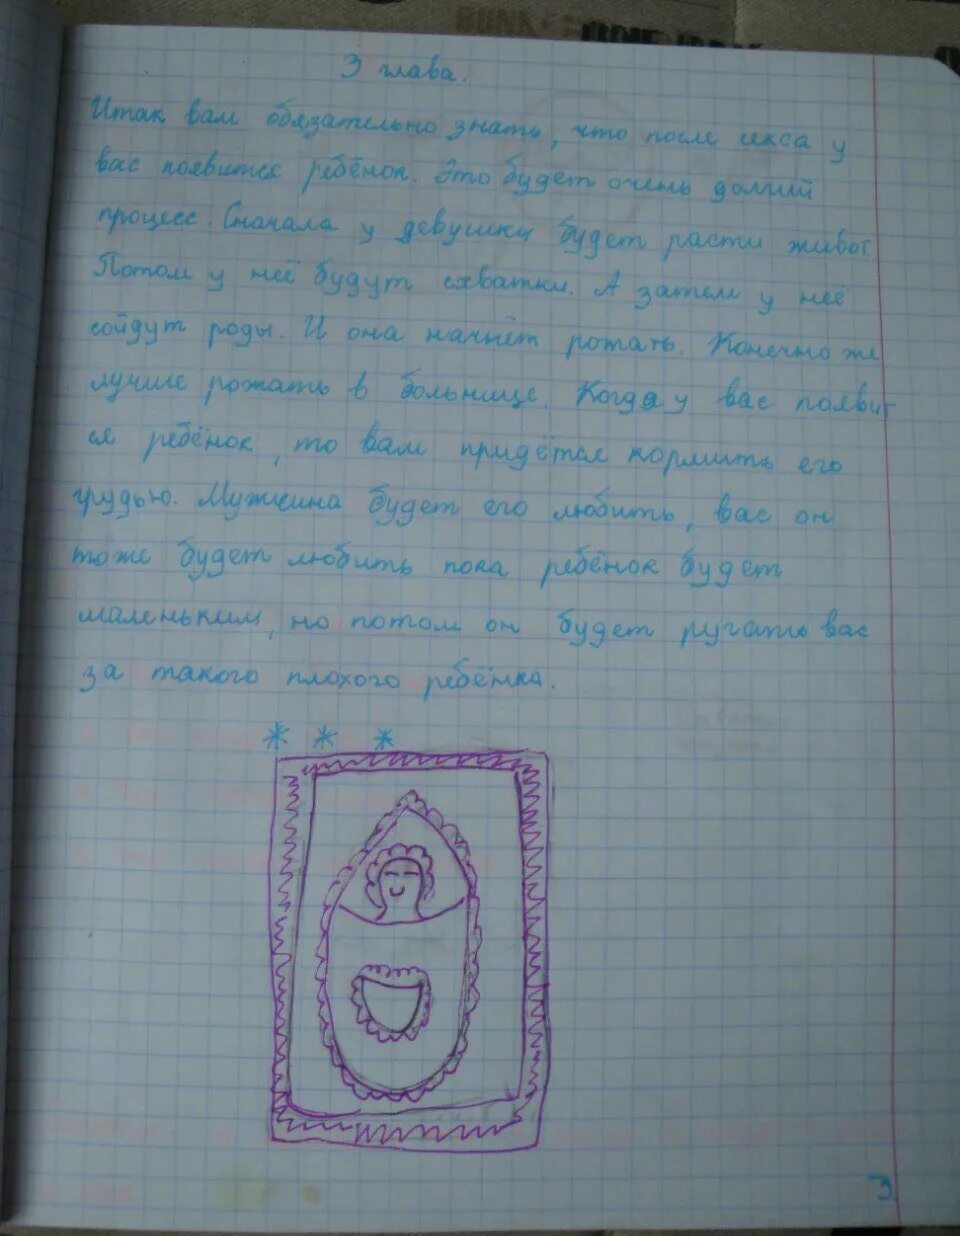 3 глава.
Итак вам обязательно знать, что после секса у
вас появится ребёнок. Это будет очень долгий
процесс. Сначала у девушки будет расти живот
Потом у неё будут схватки. А затем у неё
сойдут роды. И она начнёт рожать. Конечно же
лучше рожать в больнице. Когда у вас появит
ся ребёнок, то вам придётся кормить его
грудью. Мужчина будет его любить, вас он
тоже будет любить пока ребёнок будет
маленьким, но потом он будет ругать вас
за такого плохого ребёнка.
* * *
3